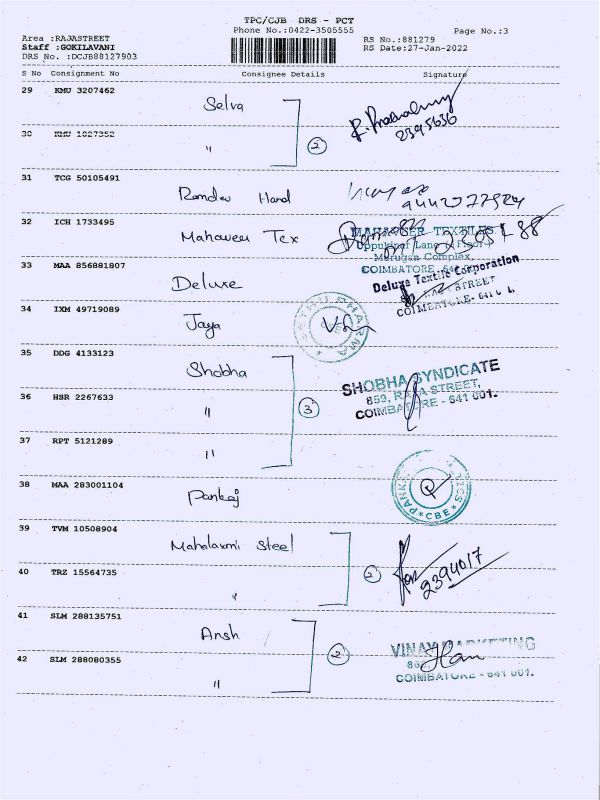 TPC/CJB DRS - PCT
Phone No.:0422-3505555
Page No.:3
Area :RAJASTREET
Staff :GOKILAVANI
DRS No. :DCJB88127903
RS No.:881279
RS Date:27-Jan-2022
S No Consignment No Consignee Details Signature
29 KMU 3207462 Selva
2395636
30 KMU 1027352 " 2
31 TCG 50105491 Ramdev Hand
32 ICH 1733495 Mahaveer Tex
MANAGER TEXTILES
Complex,
COIMBATORE
33 MAA 856881807 Deluxe
Deluxe Textile Corporation
STREET
COIMBATORE
34 IXM 49719089 Jaya
DHARMA
35 DDG 4133123 Shobha
SHOBHA SYNDICATE
859, RAJA STREET,
COIMBATORE - 641 001.
36 HSR 2267633 " 3
37 RPT 5121289 "
38 MAA 283001104 Pankaj
CBE
39 TVM 10508904 Mahalaxmi Steel
40 TRZ 15564735 " 2
2394017
41 SLM 288135751 Ansh
VINAY MARKETING
COIMBATORE - 641 001.
42 SLM 288080355 " 2